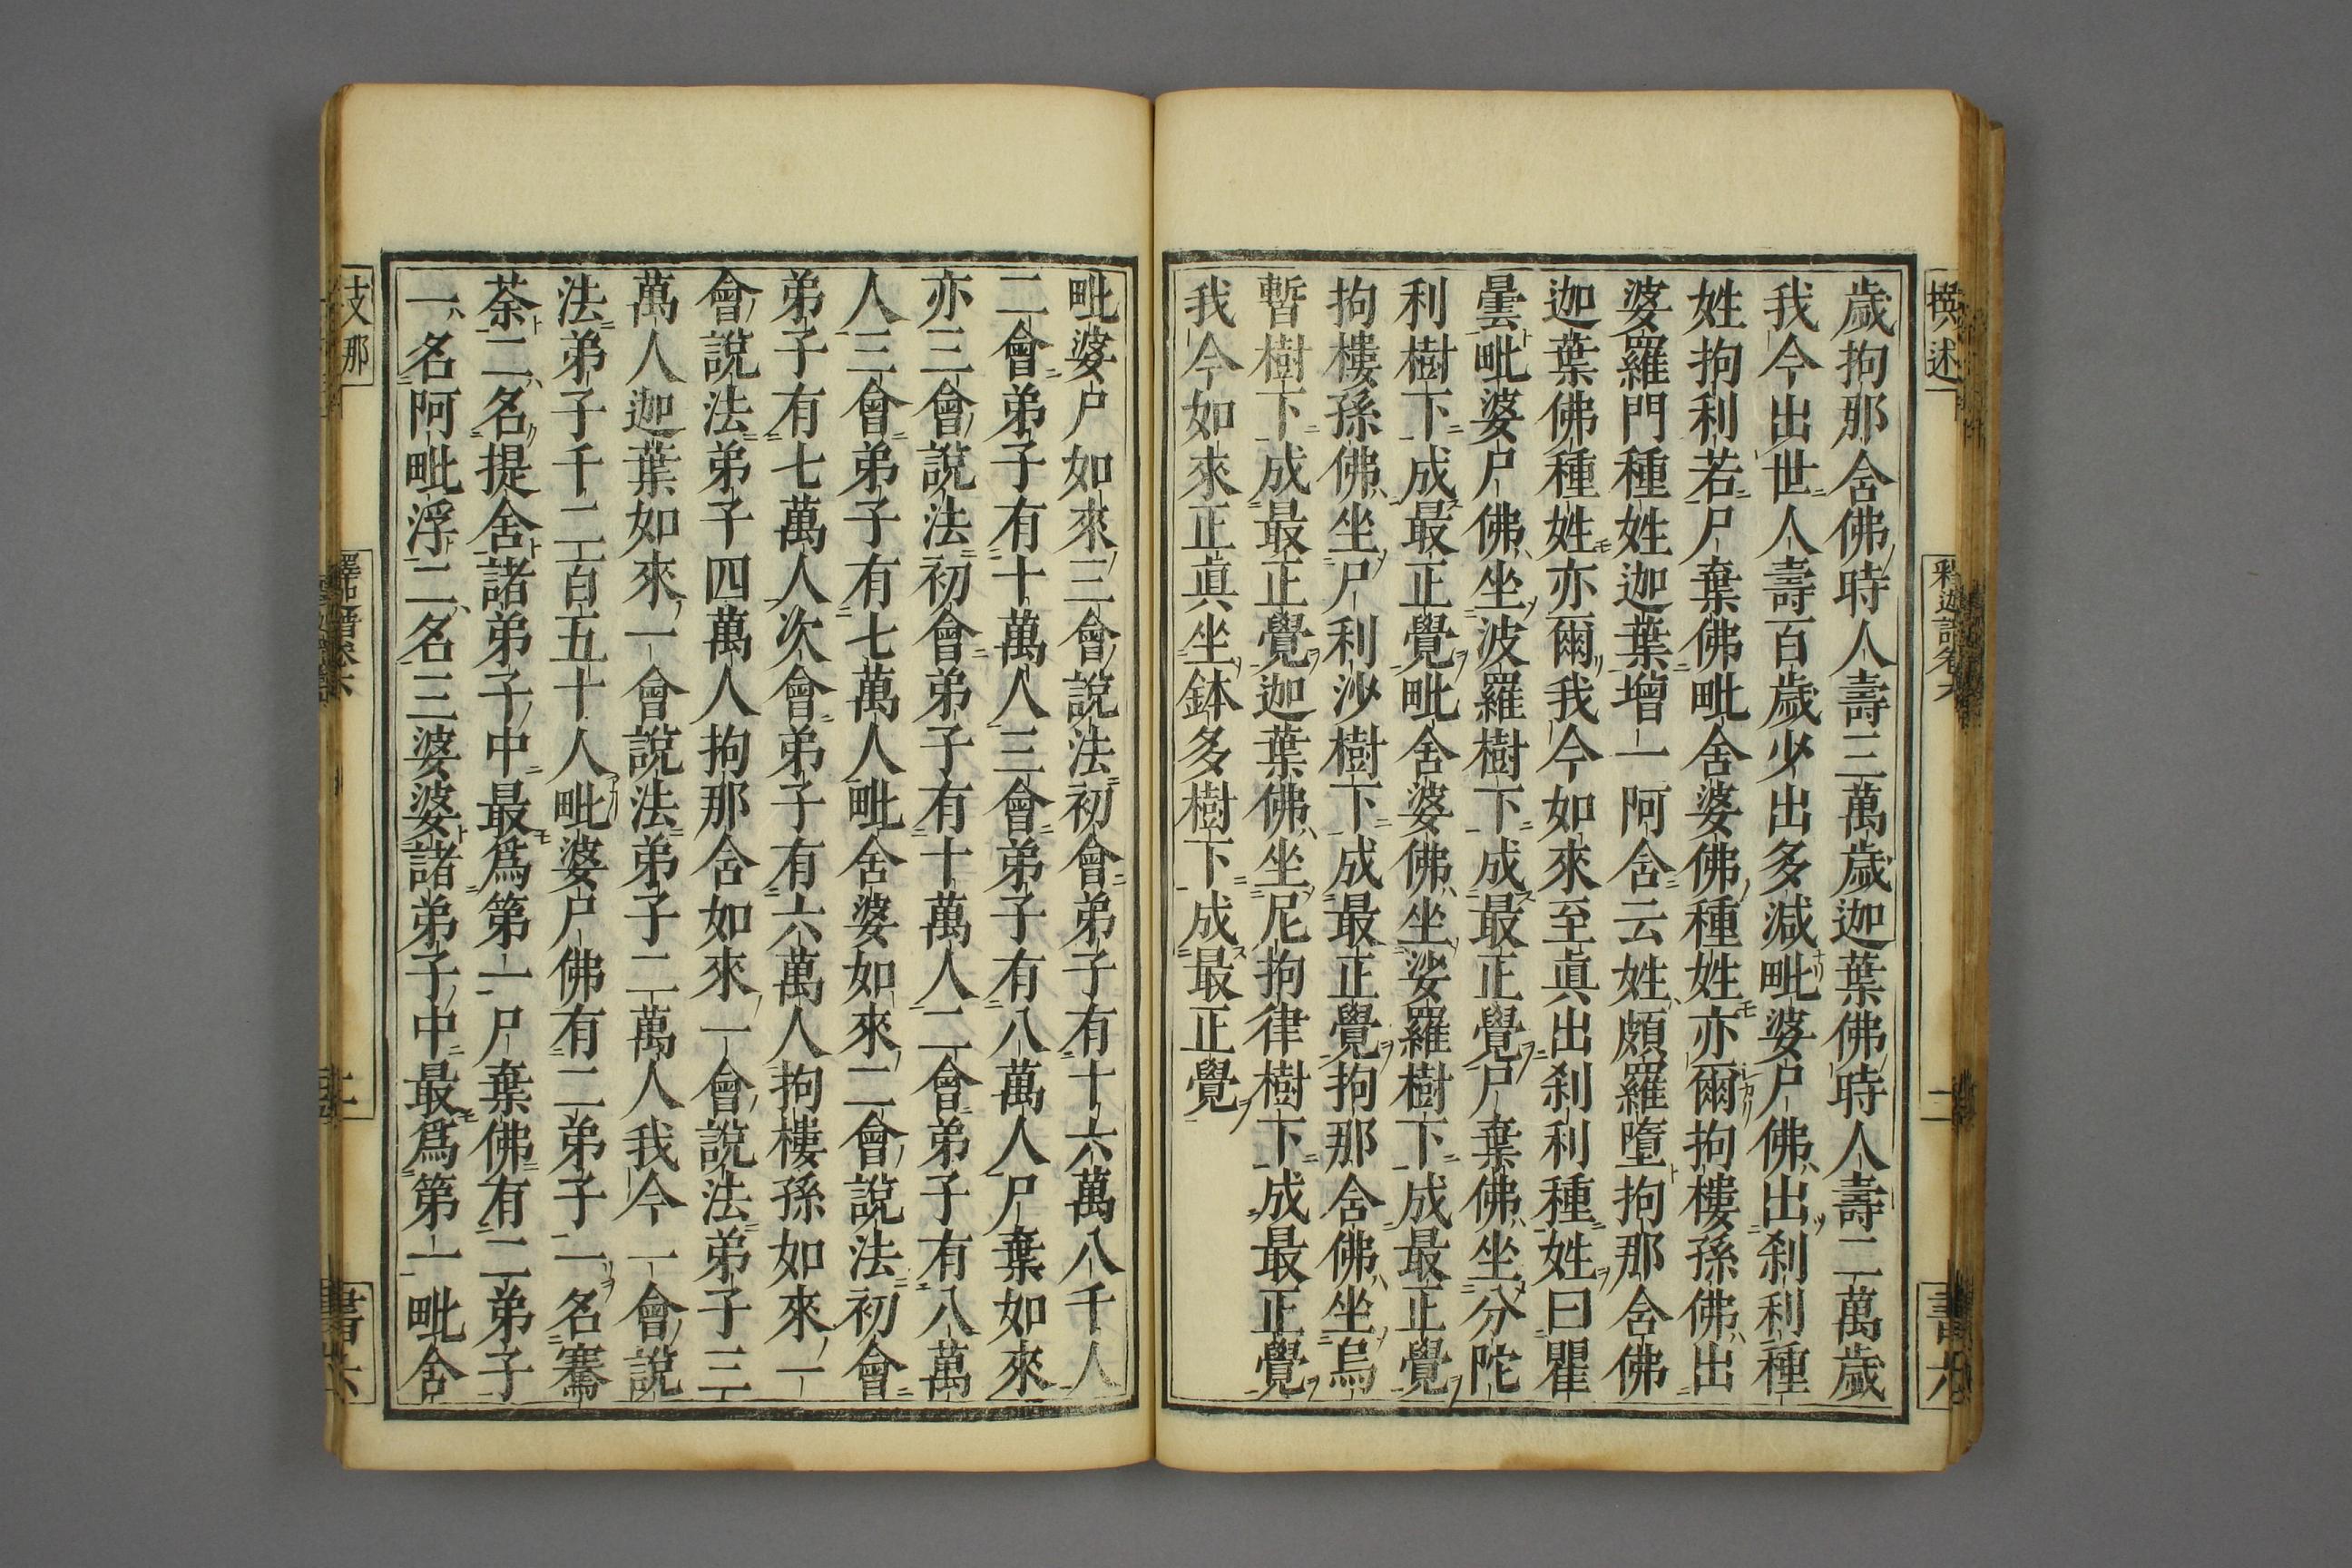 撰述
釋迦譜卷六
二
書六
歲拘那含佛時人壽三萬歲迦葉佛時人壽二萬歲
我今出世人壽百歲少出多減毗婆尸佛出刹利種
姓拘利若尸棄佛毗舍婆佛種姓亦爾拘樓孫佛出
婆羅門種姓迦葉增一阿含云姓頗羅墮拘那含佛
迦葉佛種姓亦爾我今如來至眞出刹利種姓曰瞿
曇毗婆尸佛坐波羅樹下成最正覺尸棄佛坐分陀
利樹下成最正覺毗舍婆佛坐娑羅樹下成最正覺
拘樓孫佛坐尸利沙樹下成最正覺拘那含佛坐烏
暫樹下成最正覺迦葉佛坐尼拘律樹下成最正覺
我今如來正眞坐鉢多樹下成最正覺
毗婆尸如來三會說法初會弟子有十六萬八千人
二會弟子有十萬人三會弟子有八萬人尸棄如來
亦三會說法初會弟子有十萬人二會弟子有八萬
人三會弟子有七萬人毗舍婆如來二會說法初會
弟子有七萬人次會弟子有六萬人拘樓孫如來一
會說法弟子四萬人拘那含如來一會說法弟子三
萬人迦葉如來一會說法弟子二萬人我今一會說
法弟子千二百五十人毗婆尸佛有二弟子一名騫
荼二名提舍諸弟子中最爲第一尸棄佛有二弟子
一名阿毗浮二名三婆婆諸弟子中最爲第一毗舍
支那
書六